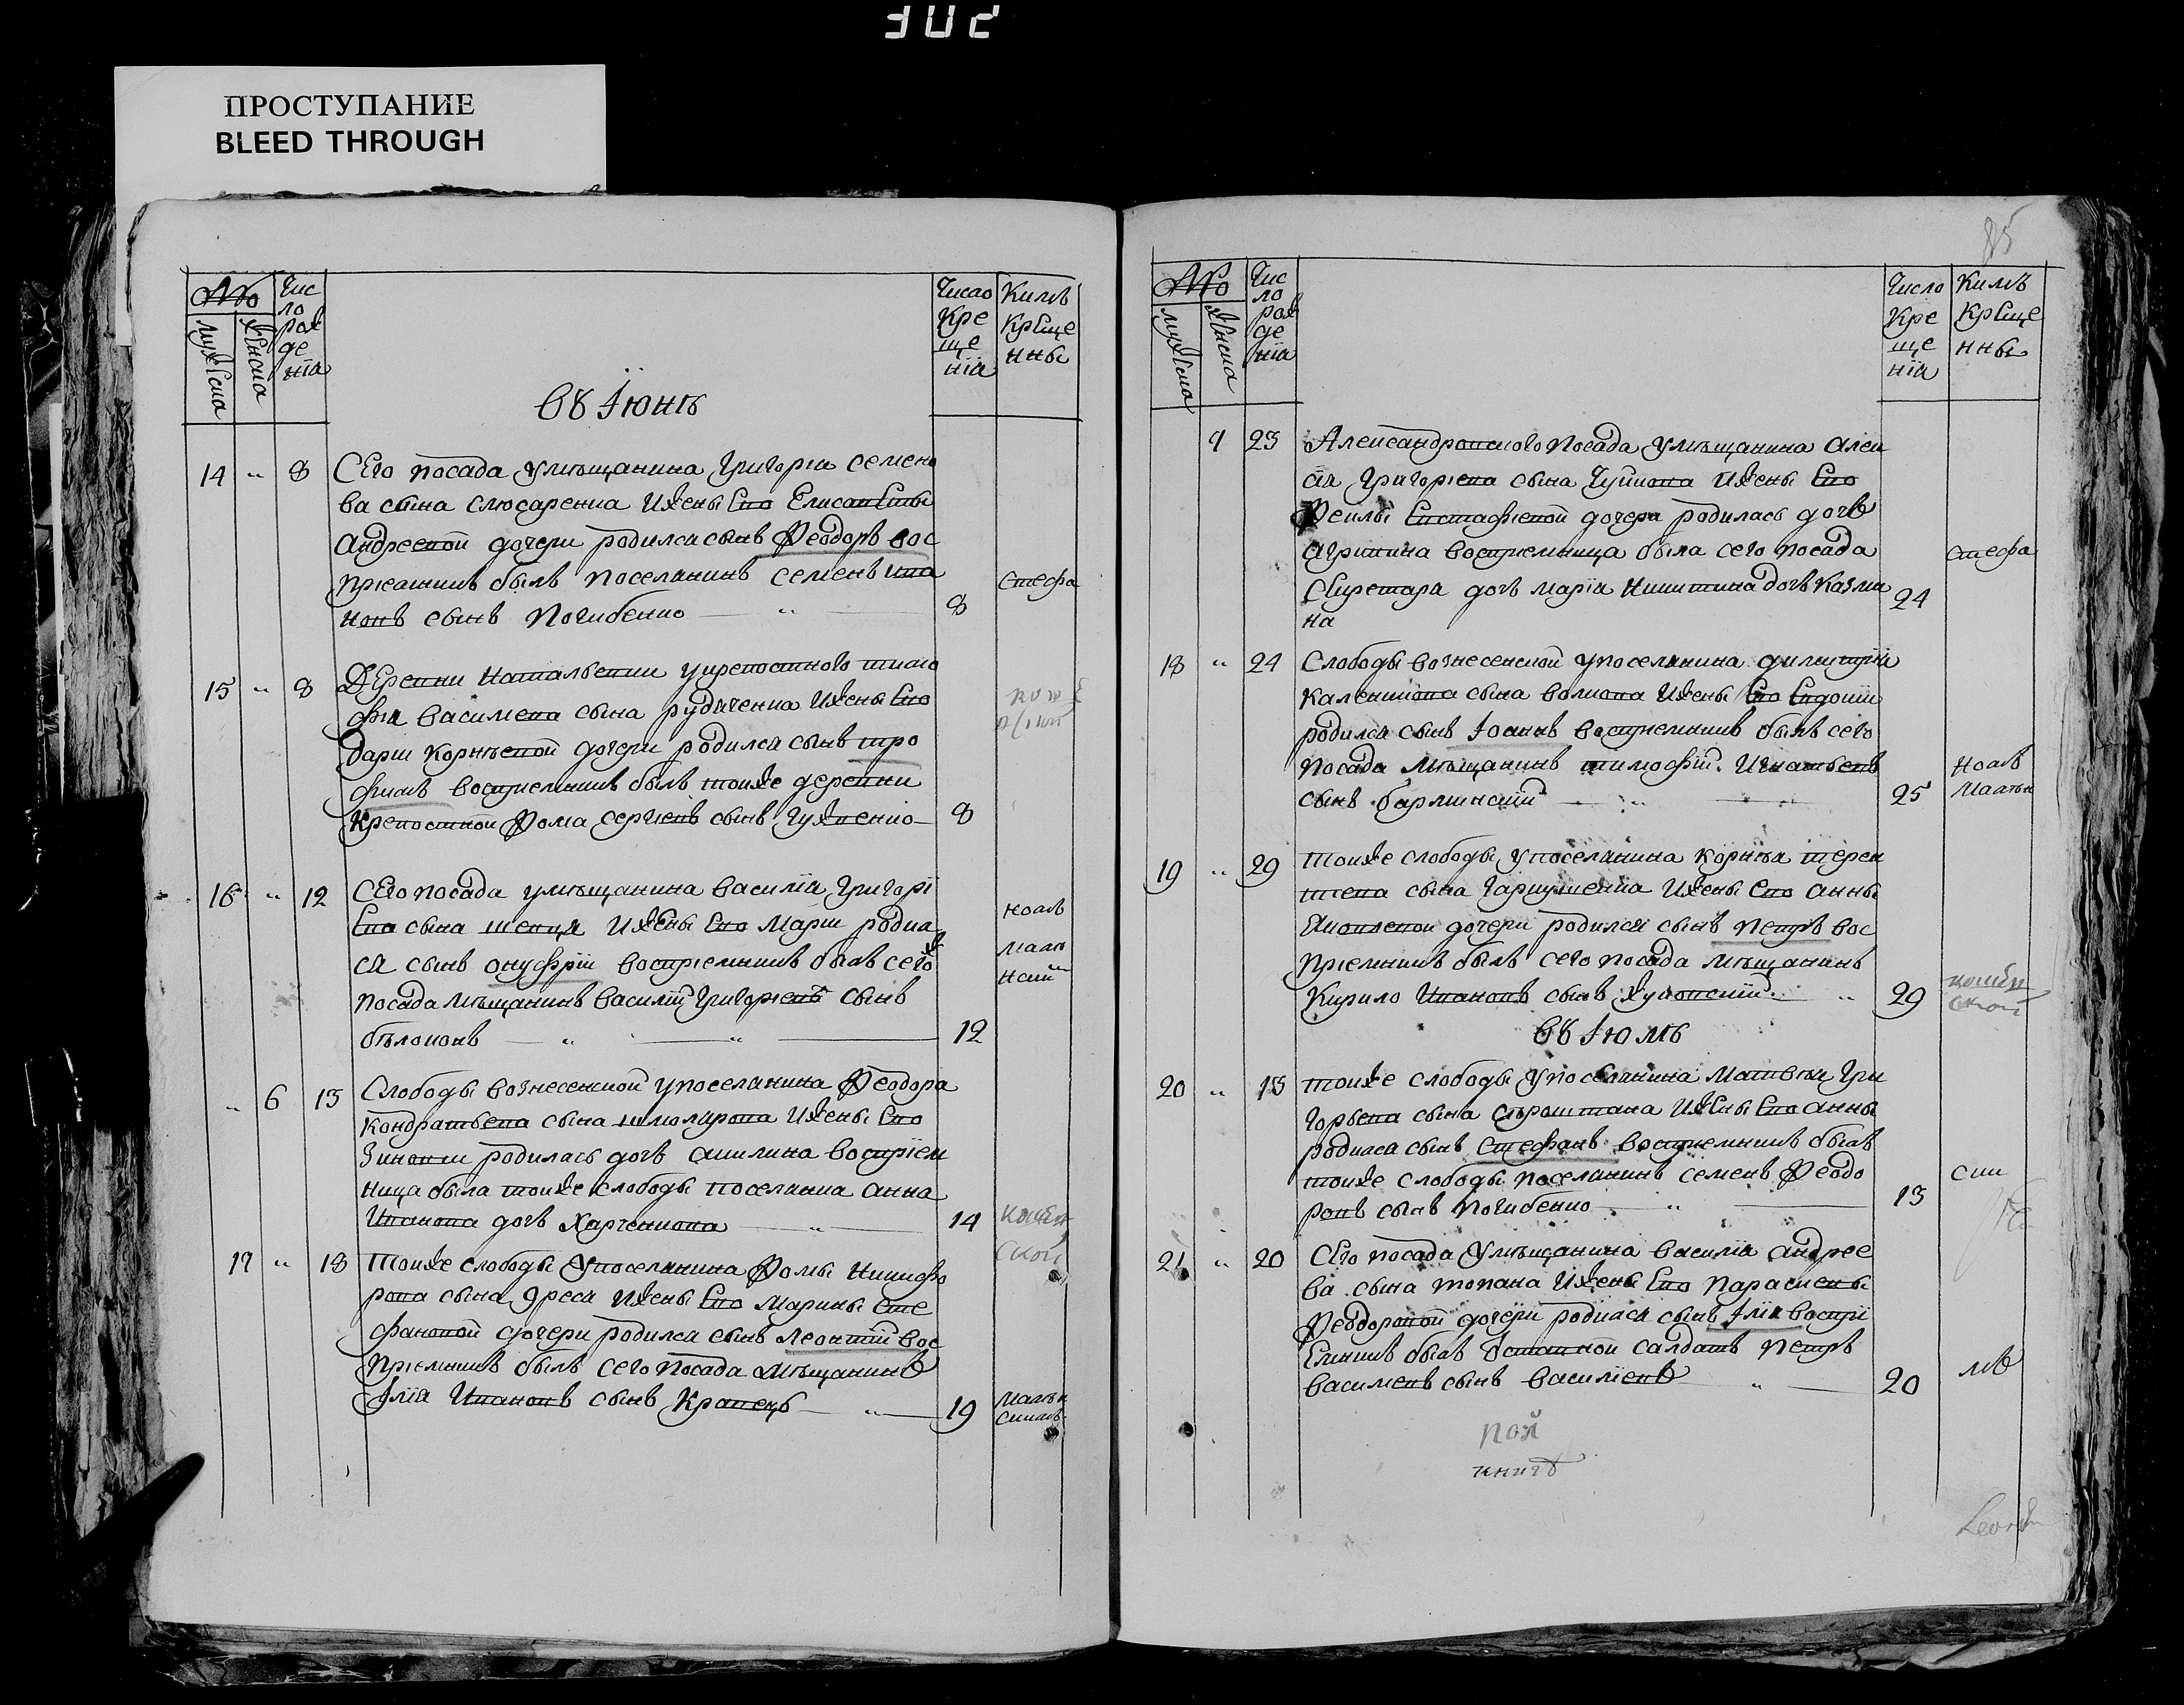 302
ПРОСТУПАНИЕ
BLEED THROUGH
№
мужеска
женска
Чис
ло
рож
де
нїа
Число
Кре
ще
нїа
Кимъ
Креще
нны
въ Їюнѣ
14 " 8 Сего посада у мѣщанина Григорїа семено
ва сына слюсаренка и жены его Елисаветы
Андреевой дочери родился сынъ Феодоръ вос
прїемникъ былъ поселанинъ семенъ ива
новъ сынъ Погибенко " 8
Стефа
15 " 8 Деревни Натальевки у крепостного тимо
фѣа василева сына рудиченка и жены его
дарїи корнѣевой дочери родился сынъ тро
фимъ воспрїемникъ былъ тойже деревни
крепостной Фома сергѣевъ сынъ Чужненко 8
16 " 12 Сего посада у мѣщанина василїа Григорї
ева сына шевца и жены его Марїи родил
ся сынъ онуфрїй воспрїемникъ былъ сегож
посада мѣщанинъ василїй Григорїевъ сынъ
бѣлоконъ " " 12
" 6 13 Слободы вознесенской у поселанина Феодора
кондратьева сына
и жены его
Зиновїи родилась дочь акилина воспрїем
ница была тойже слободы поселанка анна
Иванова дочь Харченкова " 14
17 " 18 Тойже слободы у поселанина Фомы Никифо
рова сына
и жены его Марины сте
фановой дочери родился сынъ Леонтїй вос
прїемникъ былъ сего посада мѣщанинъ
Їлїа Ивановъ сынъ Кравецъ " 19
85
№
мужеска
женска
Чис
ло
рож
де
нїа
Число
Кре
ще
нїа
Кимъ
Креще
нны
7 23 Александровского посада у мѣщанина Алек
сѣа Григорїева сына Чуйкова и жены его
Феклы Евстафїевой дочери родилась дочь
агрипина воспрїемница была сего посада
Секретара дочь марїа Никитина дочь Казми
на 24
Стефа
18 " 24 Слободы вознесенской у поселанина димитрїа
каленикова сына волкова и жены его Евдокїи
родился сынъ Їоаннъ воспрїемникъ былъ сего
посада мѣщанинъ тимофѣй Игнатьевъ
сынъ барминский " 25
19 " 29 Тойже слободы у поселанина корнѣа терен
тева сына Гаркушенка и жены его анны
Яковлевой дочери родился сынъ петръ вос
прїемникъ былъ сего посада мѣщанинъ
Кирило Ивановъ сынъ Жуковский " 29
въ Їюлѣ
20 " 13 тойже слободы у поселанина Матвѣа Гри
горьева сына
и жены его анны
родился сынъ Стефанъ воспрїемникъ былъ
тойже слободы поселанинъ семенъ Феодо
ровъ сынъ Погибенко " 13
21 " 20 Сего посада у мѣщанина василїа андрее
ва сына топала и жены его Параскевы
Феодоровой дочери родился сынъ Їлїа воспрї
емникъ былъ отставной салдатъ Петръ
василїевъ сынъ василїевъ " 20